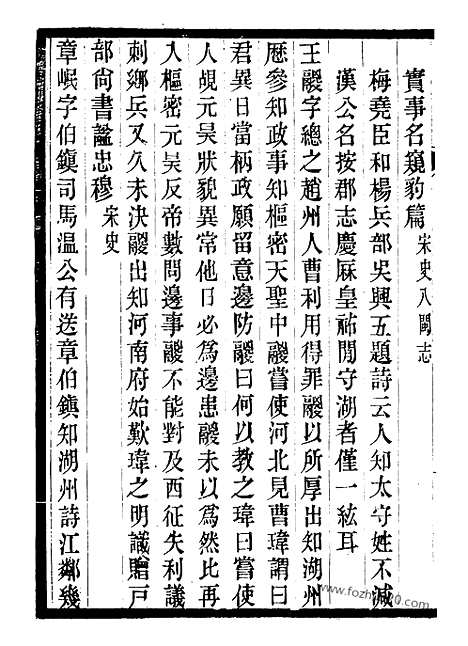 實事名窺豹篇 宋史八閩志
梅堯臣和楊兵部吳興五題詩云人知太守姓不減
漢公名按郡志慶厤皇祐閒守湖者僅一絃耳
王鬷字總之趙州人曹利用得罪鬷以所厚出知湖州
歷參知政事知樞密天聖中鬷嘗使河北見曹瑋謂曰
君異日當柄政願留意邊防鬷曰何以教之瑋曰嘗使
人覘元昊狀貌異常他日必為邊患鬷未以為然比再
入樞密元昊反帝數問邊事鬷不能對及西征失利議
刺鄉兵又久未決鬷出知河南府始歎瑋之明識贈戶
部尚書諡忠穆 宋史
章岷字伯鎮司馬溫公有送章伯鎮知湖州詩江鄰幾
www.fozhu920.com